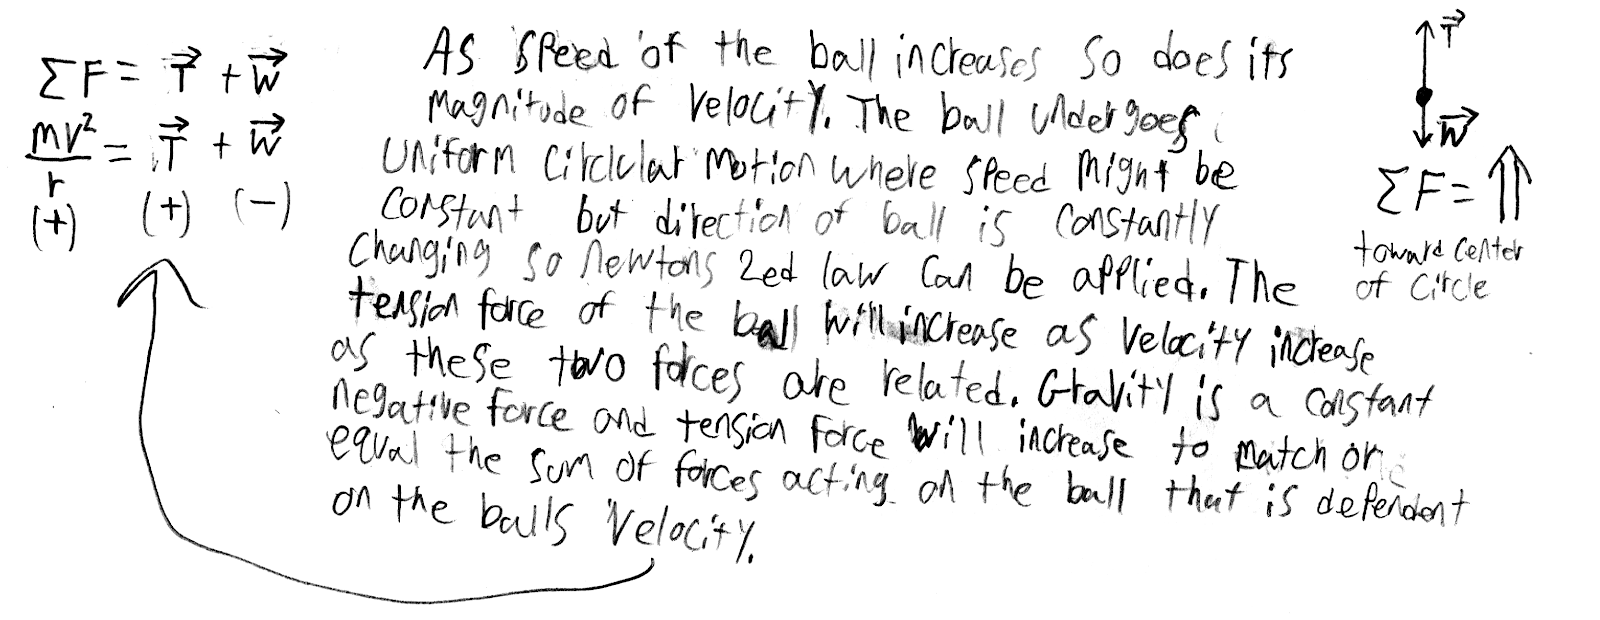 ΣF = T⃗ + W⃗
mv²/r = T⃗ + W⃗
(+) (+) (-)
As speed of the ball increases so does its
magnitude of velocity. The ball undergoes
uniform circlular motion where speed might be
constant but direction of ball is constantly
changing so newtons 2ed law can be applied. The
tension force of the ball will increase as velocity increase
as these two forces are related. Gravity is a constant
negative force and tension force will increase to match or
equal the sum of forces acting on the ball that is dependent
on the balls velocity.
T⃗
W⃗
ΣF = ⇑
toward center
of circle